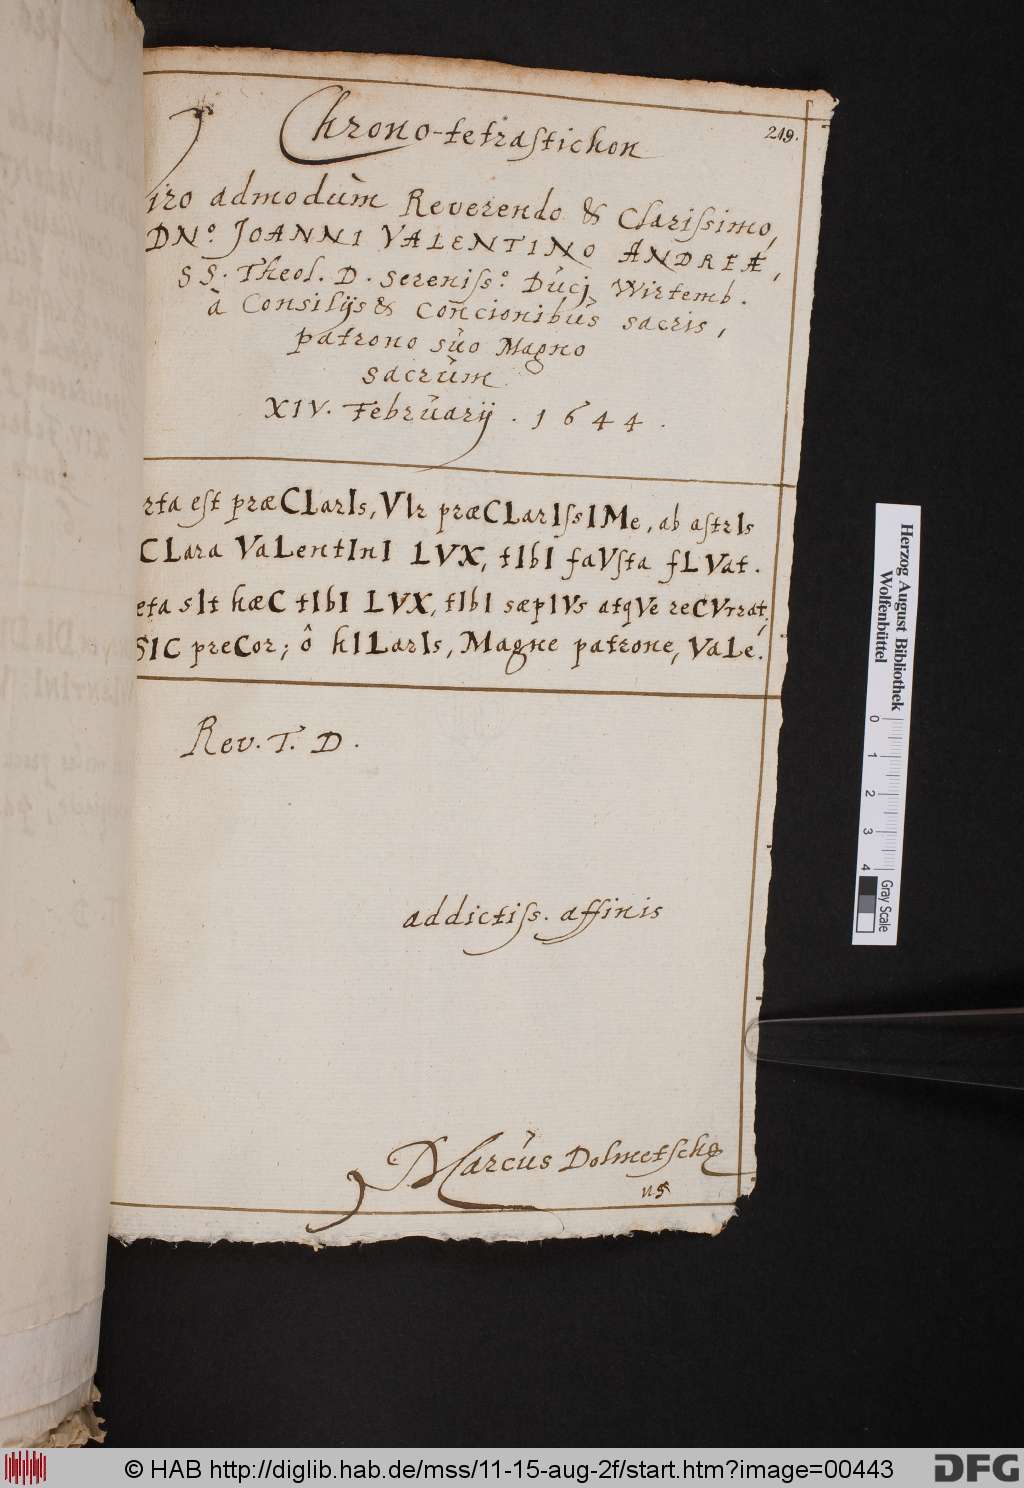 219.
Chrono-tetrastichon
iro admodùm Reverendo & Clarissimo,
DN.º JOANNI VALENTINO ANDREÆ,
SS. Theol. D. sereniss.º Dùcj Wirtemb.
à Consilijs & Concionibùs sacris,
patrono sùo Magno
sacrùm
XIV. Febrùarij. 1644.
rta est præCLarIs, VIr præCLarIssIMe, ab astrIs
CLara VaLentInI LVX, tIbI faVsta fLVat.
eta sIt hæC tIbI LVX, tIbI sæpIVs atqVe reCVrrat;
SIC preCor; ô hILarIs, Magne patrone, VaLe.
Rev. T. D.
addictiss. affinis
Marcùs Dolmetschg
Herzog August Bibliothek
Wolfenbüttel
0 1 2 3 4
Gray Scale
© HAB http://diglib.hab.de/mss/11-15-aug-2f/start.htm?image=00443
DFG